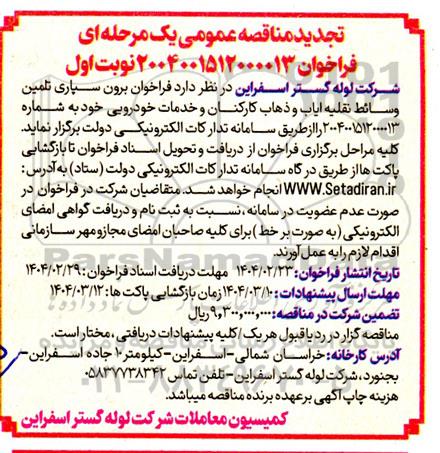 تجدید مناقصه عمومی یک مرحله ای
فراخوان ۲۰۰۴۰۰۱۵۱۲۰۰۰۰۱۳ نوبت اول
شرکت لوله گستر اسفراین در نظر دارد فراخوان برون سپاری تامین
وسائط نقلیه ایاب و ذهاب کارکنان و خدمات خودرویی خود به شماره
۲۰۰۴۰۰۱۵۱۲۰۰۰۰۱۳ را از طریق سامانه تدارکات الکترونیکی دولت برگزار نماید.
کلیه مراحل برگزاری فراخوان از دریافت و تحویل اسناد فراخوان تا بازگشایی
پاکت ها از طریق درگاه سامانه تدارکات الکترونیکی دولت (ستاد) به آدرس :
WWW.Setadiran.ir انجام خواهد شد. متقاضیان شرکت در فراخوان در
صورت عدم عضویت در سامانه ، نسبت به ثبت نام و دریافت گواهی امضای
الکترونیکی (به صورت بر خط) برای کلیه صاحبان امضای مجاز و مهر سازمانی
اقدام لازم را به عمل آورند.
تاریخ انتشار فراخوان: ۱۴۰۴/۰۲/۲۳ مهلت دریافت اسناد فراخوان : ۱۴۰۴/۰۲/۲۹
مهلت ارسال پیشنهادات : ۱۴۰۴/۰۳/۱۰ زمان بازگشایی پاکت ها : ۱۴۰۴/۰۳/۱۲
تضمین شرکت در مناقصه: ۹,۳۰۰,۰۰۰,۰۰۰ ریال
مناقصه گزار در رد یا قبول هر یک/ کلیه پیشنهادات دریافتی ، مختار است.
آدرس کارخانه: خراسان شمالی-اسفراین-کیلومتر ۱۰ جاده اسفراین-
بجنورد، شرکت لوله گستر اسفراین- تلفن تماس ۰۵۸۳۷۷۳۸۳۴۲
هزینه چاپ آگهی بر عهده برنده مناقصه میباشد.
کمیسیون معاملات شرکت لوله گستر اسفراین